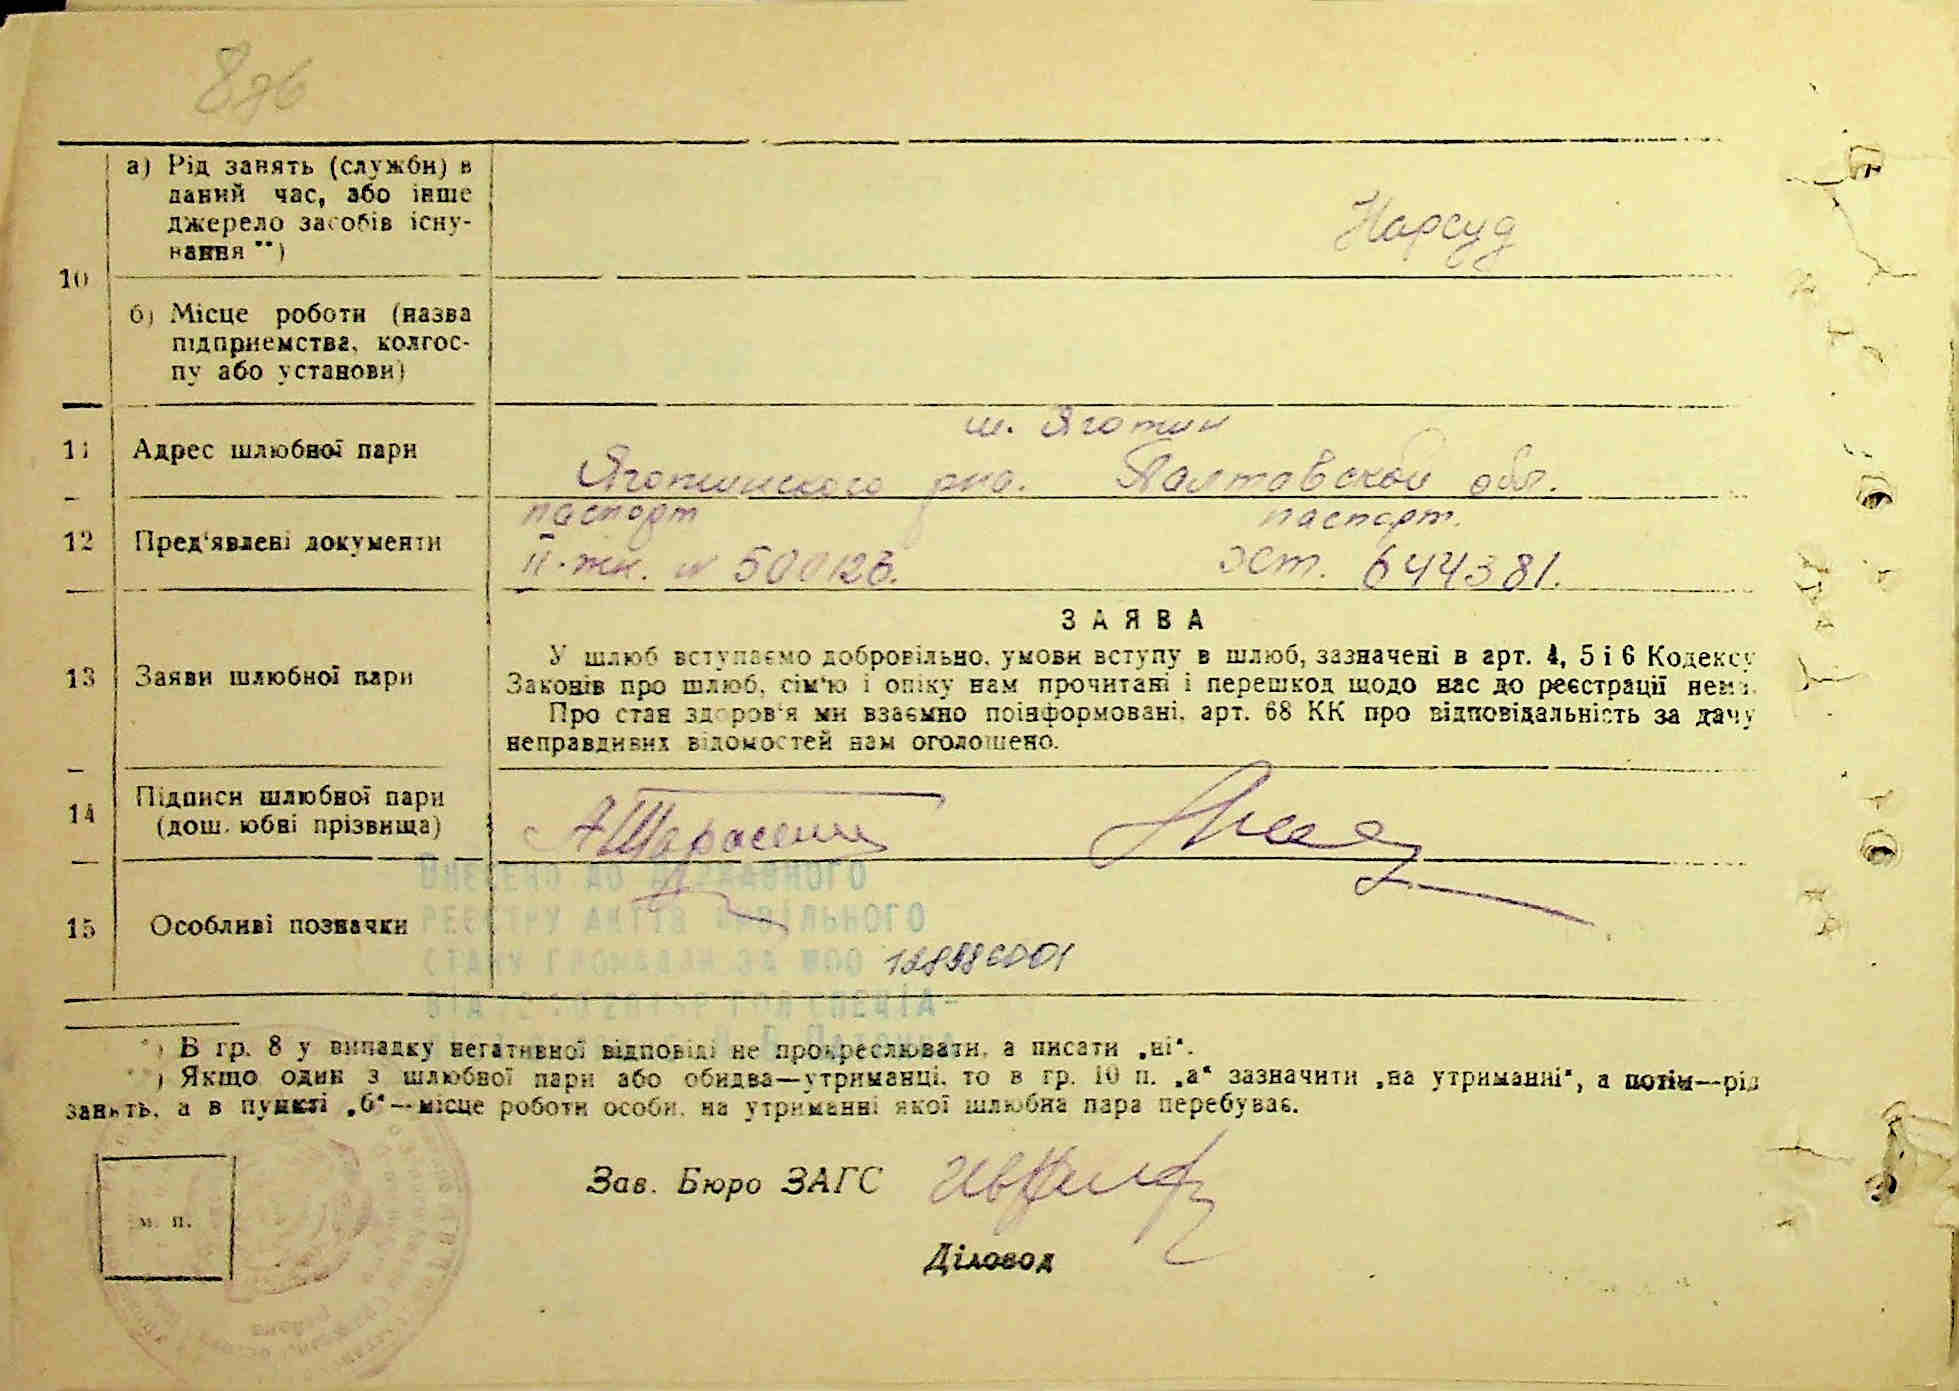 а) Рід занять (служби) в
даний час, або інше
джерело засобів існу-
вання **)
Нарсуд
10
б) Місце роботи (назва
підприємства, колгос-
пу або установи)
м. Яготин
11 Адрес шлюбної пари
Яготинского рна. Полтавской обл.
паспорт паспорт.
12 Пред'явлені документи
№ 500126. 644381.
ЗАЯВА
У шлюб вступаємо добровільно, умови вступу в шлюб, зазначені в арт. 4, 5 і 6 Кодексу
13 Заяви шлюбної пари
Законів про шлюб, сім'ю і опіку нам прочитані і перешкод щодо нас до реєстрації нема.
Про стан здоров'я ми взаємно поінформовані, арт. 68 КК про відповідальність за дачу
неправдивих відомостей нам оголошено.
14 Підписи шлюбної пари
(дошлюбні прізвища)
ВНЕСЕНО ДО ДЕРЖАВНОГО
РЕЄСТРУ АКТІВ ЦИВІЛЬНОГО
15 Особливі позначки
СТАНУ ГРОМАДЯН ЗА №00
*) В гр. 8 у випадку негативної відповіді не прокреслювати, а писати „ні“.
**) Якщо один з шлюбної пари або обидва—утриманці, то в гр. 10 п. „а“ зазначити „на утриманні“, а потім—рід
занять, а в пункті „б“—місце роботи особи, на утриманні якої шлюбна пара перебуває.
Зав. Бюро ЗАГС
м. п.
Діловод